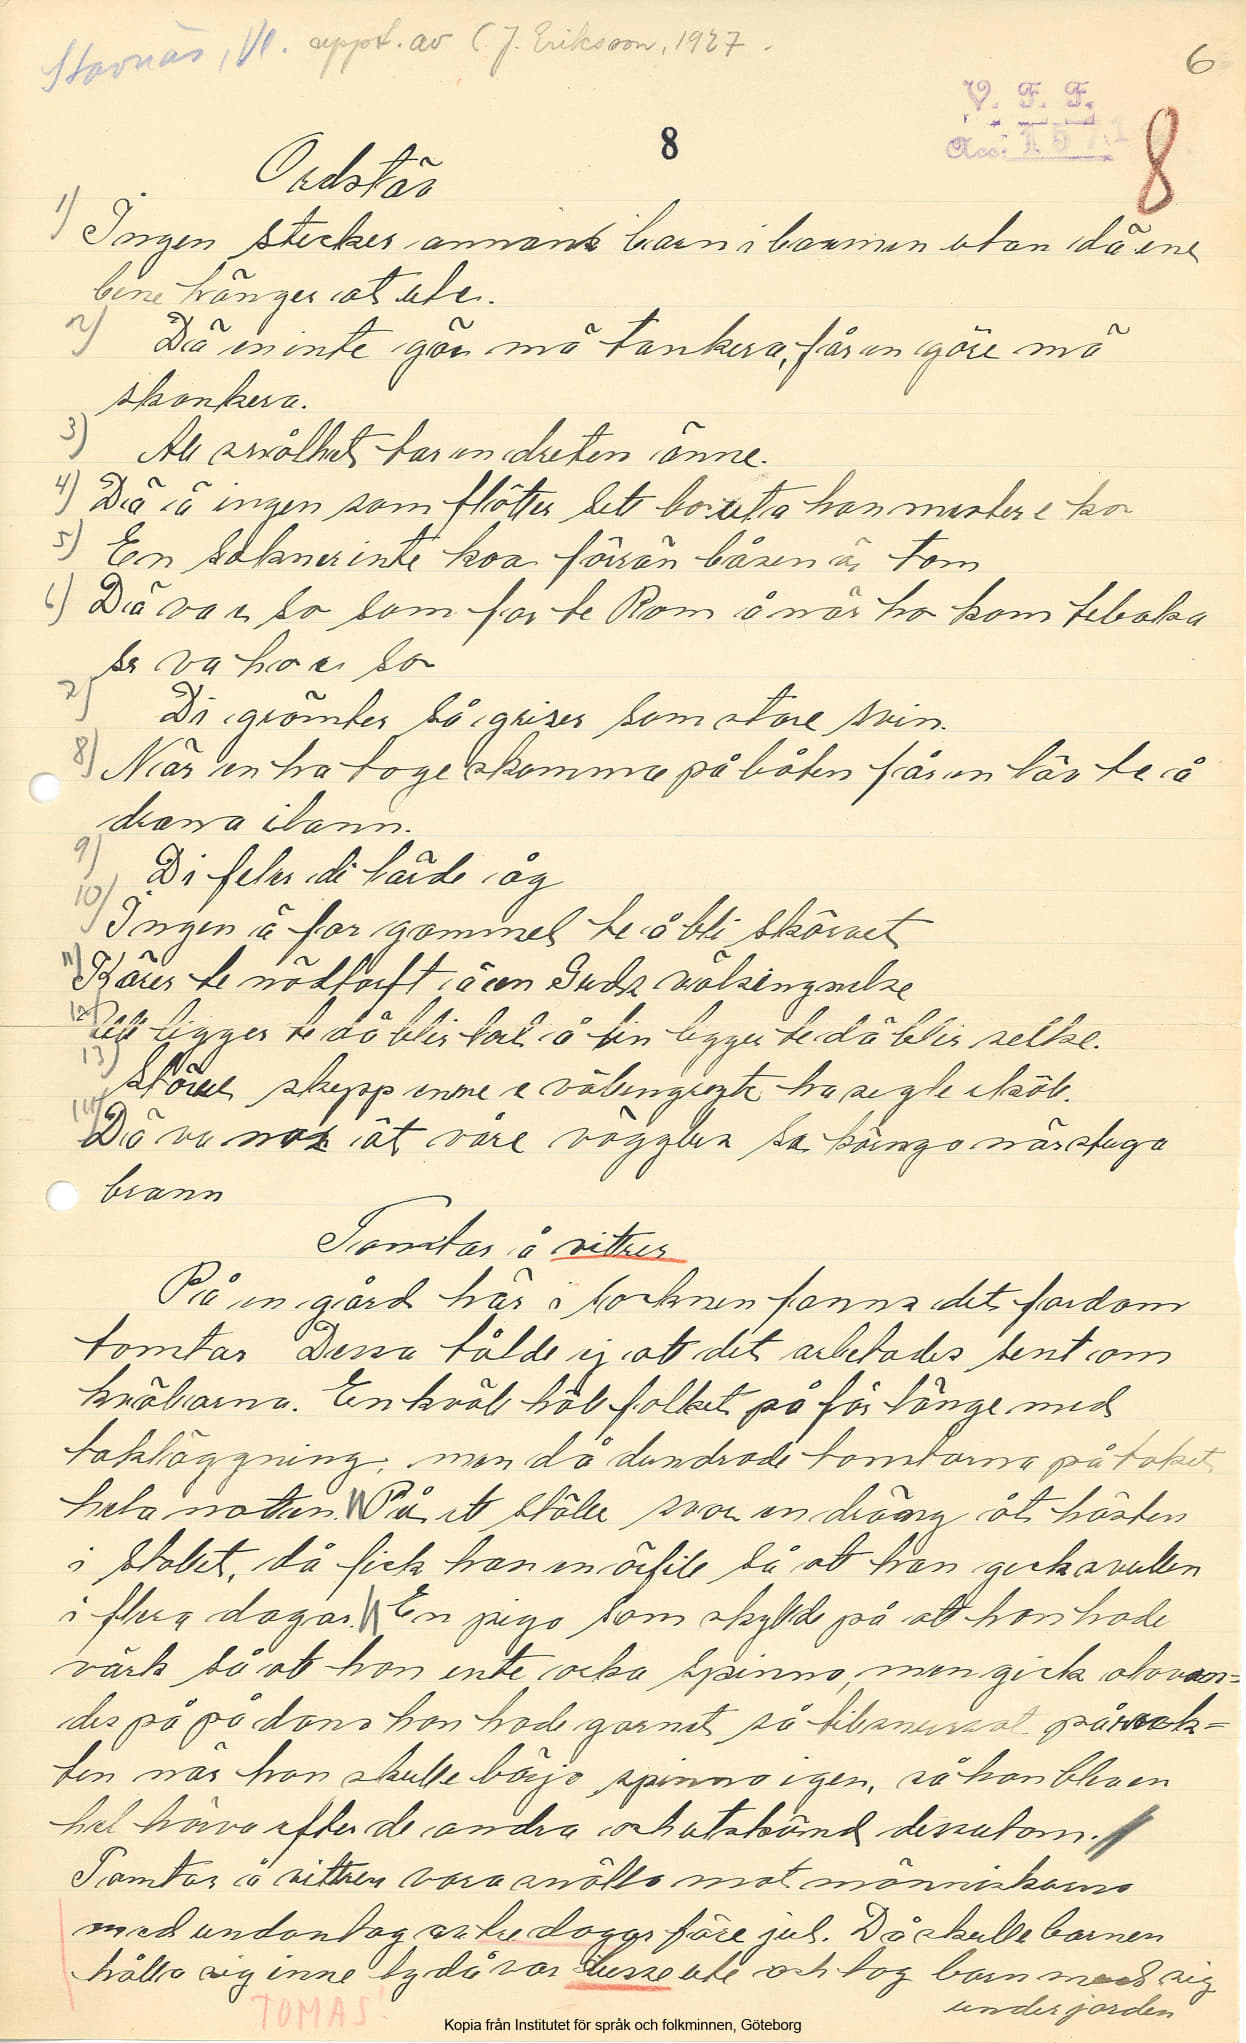 Stavnäs, Vl. uppt. av C J. Eriksson, 1927.
6
V. F. F.
Acc: 1571
8
8
Ordstäv
1) Ingen stecker annans barn i barmen utan dä ene
bene hänger åt ute.
2) Dä en inte gör mä tankera, får en göre mä
skankera.
3) Av snålhet tar en dreten änne.
4) Dä ä ingen som flötter sett bo uta han mester e ko
5) En sakner inte koa förrän båsen är tom
6) Dä va e so som for te Rom å når ho kom tebaka
sa va ho e so
7) Di grömter så griser som store svin.
8) När en ha toge skamma på båten får en läv te å
drawa i lann.
9) Di feler di lärde åg
10) Ingen ä for gammel te å bli skörvet
11) Kärer te nödtorft ä en Guds välsingnelse
12) Ull ligger te dä blir lort å lin ligger te dä blir selke.
13) Störvet skepp enne e välbingrejte ha segle ihöl.
14) Dä va nos åt våre vägglus sa käringa når stuga
brann
Tomtar å vittrer
På en gård här i socknen fanns det fordom
tomtar Dessa tålde ej att det arbetades sent om
kvällarna. En kväll höll folket på för länge med
takläggning, men då dundrade tomtarna på taket
hela natten. På ett ställe svor en dräng åt hästen
i stallet, då fick han en örfil så att han gick svullen
i flera dagar. En piga som skyllde på att hon hade
värk så att hon ente orka spinna, men gick
des på på dans hon hade garnet så tillsnurrat på rock=
ten när hon skulle börja spinna igen, så hon blev en
hel härva efter de andra och utskämd dessutom.
Tomtar å vittrer vara snälla mot människorna
med undantag av tre dagar före jul. Då skulle barnen
hålla sig inne ty då var lusse ute och tog barn med sig
under jorden
TOMAS!
Kopia från Institutet för språk och folkminnen, Göteborg